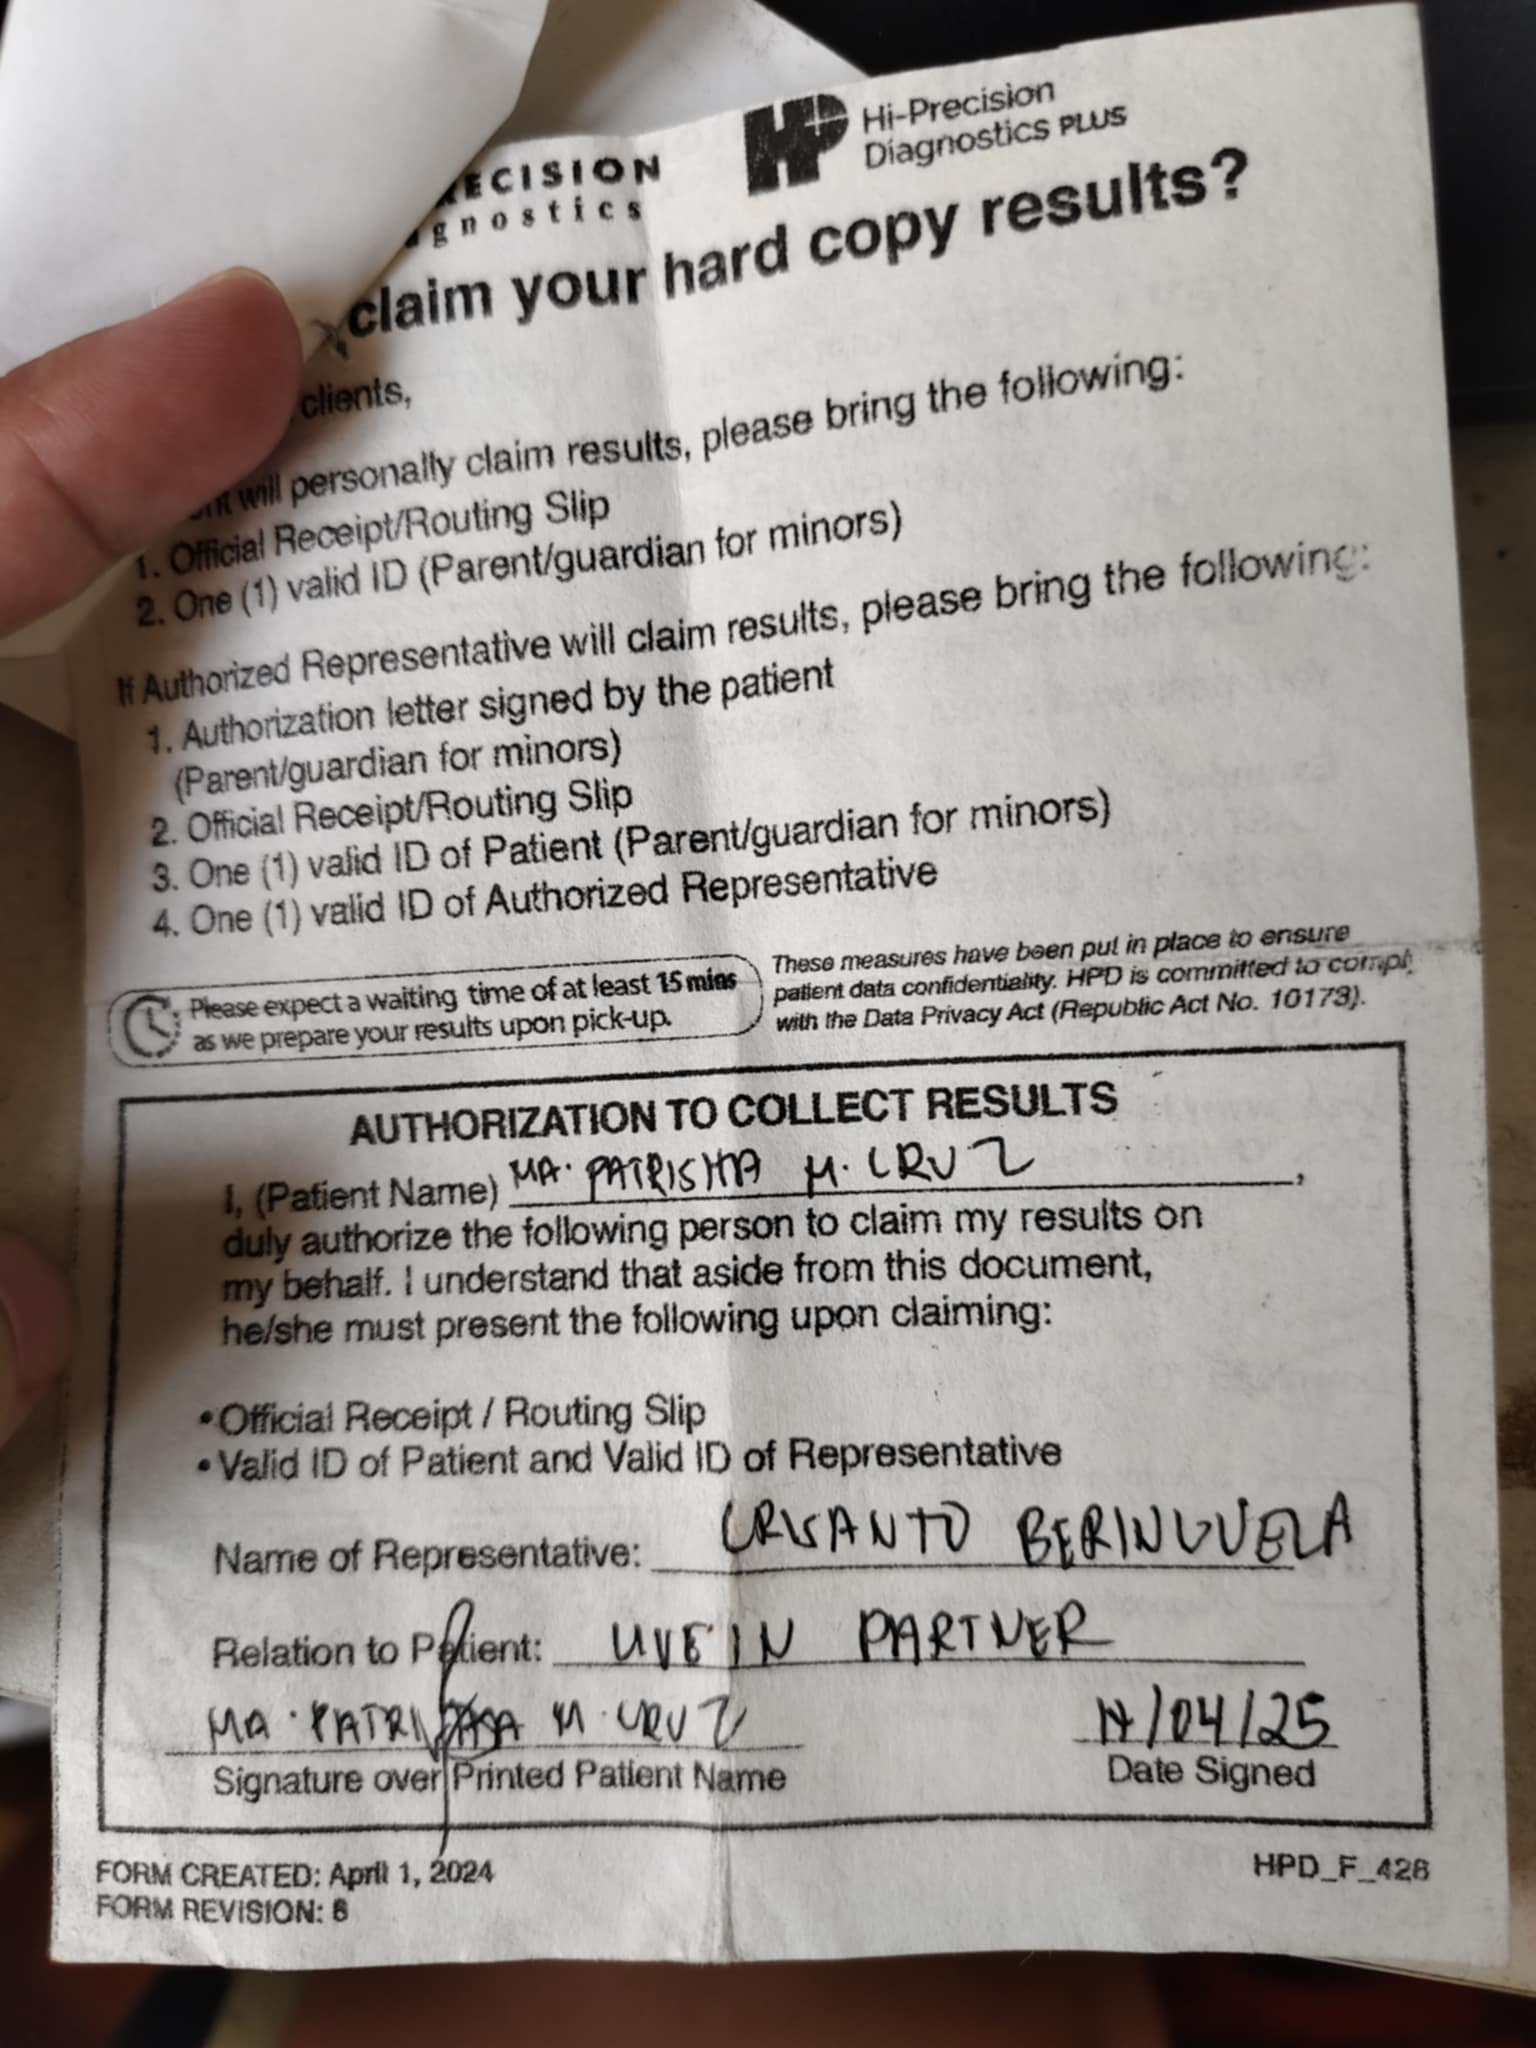 Hi-Precision
Diagnostics PLUS
claim your hard copy results?
clients,
will personally claim results, please bring the following:
1. Official Receipt/Routing Slip
2. One (1) valid ID (Parent/guardian for minors)
If Authorized Representative will claim results, please bring the following:
1. Authorization letter signed by the patient
(Parent/guardian for minors)
2. Official Receipt/Routing Slip
3. One (1) valid ID of Patient (Parent/guardian for minors)
4. One (1) valid ID of Authorized Representative
Please expect a waiting time of at least 15 mins
as we prepare your results upon pick-up.
These measures have been put in place to ensure
patient data confidentiality. HPD is committed to comply
with the Data Privacy Act (Republic Act No. 10173).
AUTHORIZATION TO COLLECT RESULTS
I, (Patient Name) MA. PATRISHA M. CRUZ,
duly authorize the following person to claim my results on
my behalf. I understand that aside from this document,
he/she must present the following upon claiming:
• Official Receipt / Routing Slip
• Valid ID of Patient and Valid ID of Representative
Name of Representative: CRISANTO BERINGUELA
Relation to Patient: LIVE IN PARTNER
MA. PATRISHA M. CRUZ
/04/25
Signature over Printed Patient Name
Date Signed
FORM CREATED: April 1, 2024
FORM REVISION: 6
HPD_F_426